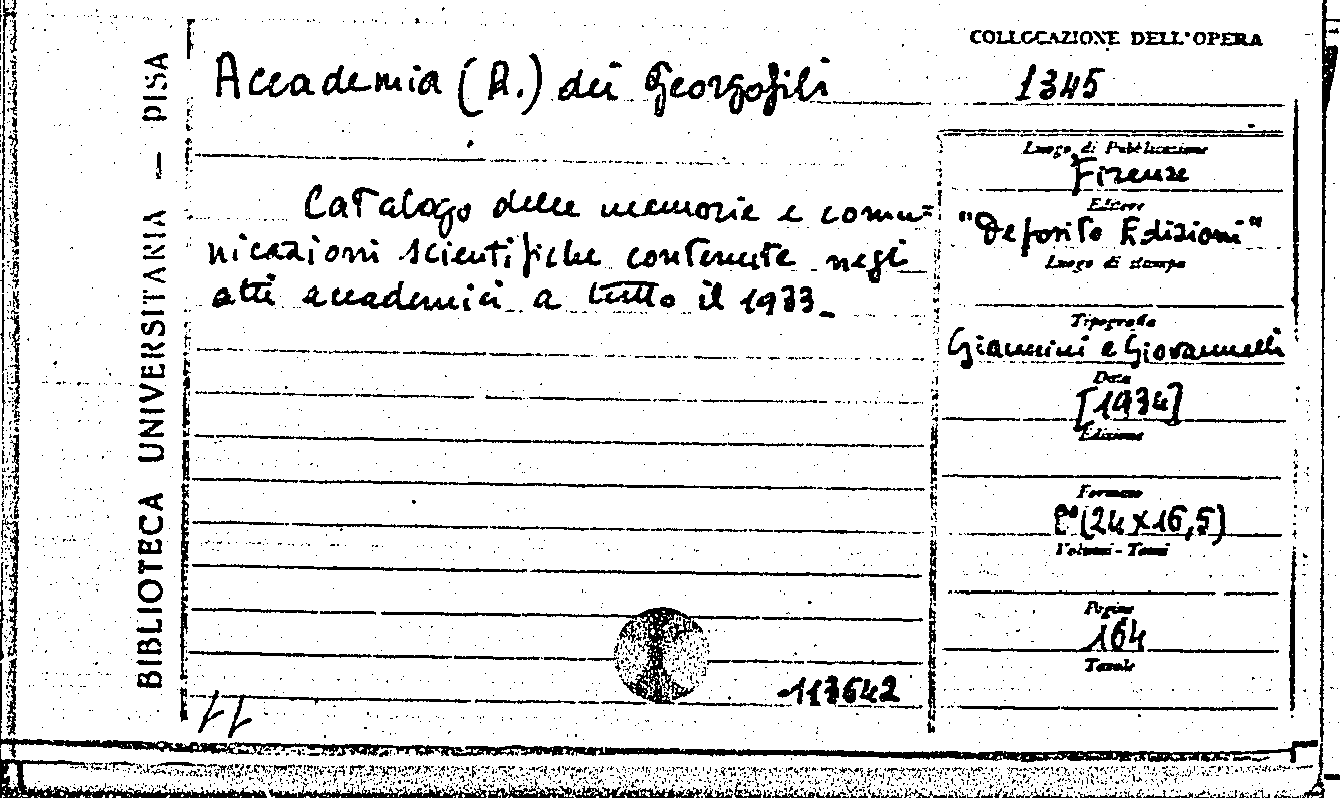 BIBLIOTECA UNIVERSITARIA — PISA
Accademia (R.) dei Georgofili
Catalogo delle memorie e comu=
nicazioni scientifiche contenute negli
atti accademici a tutto il 1933_
113642
COLLOCAZIONE DELL'OPERA
1345
Luogo di Pubblicazione
Firenze
Editore
"Deposito Edizioni"
Luogo di stampa
Tipografia
Giannini e Giovannelli
Data
[1934]
Edizione
Formato
8°(24x16,5)
Volumi - Tomi
Pagine
164
Tavole